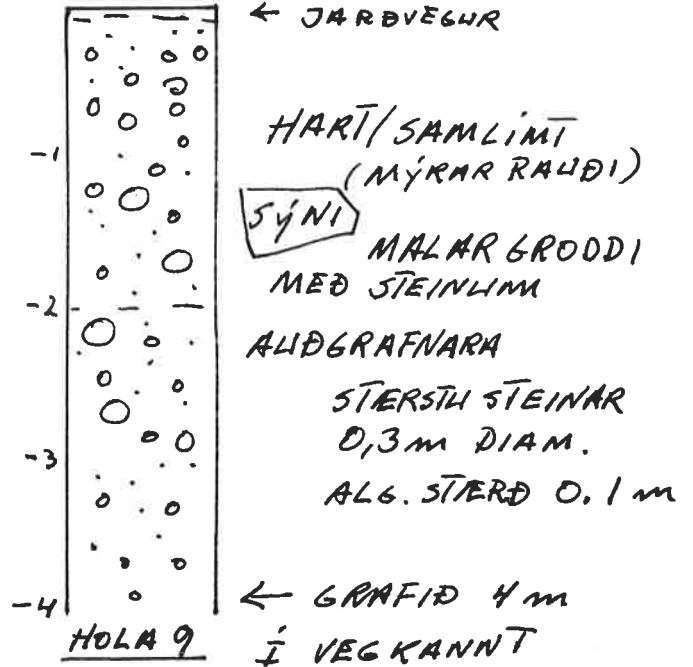 ← JARÐVEGUR
HART/SAMLÍMT
-1
(MÝRAR RAUÐI)
SÝNI
MALAR GRODDI
MEÐ STEINUM
-2
AUÐGRAFNARA
STÆRSTU STEINAR
0,3m DIAM.
-3
ALG. STÆRÐ 0.1m
-4
← GRAFIÐ 4m
HOLA 9
Í VEGKANNT